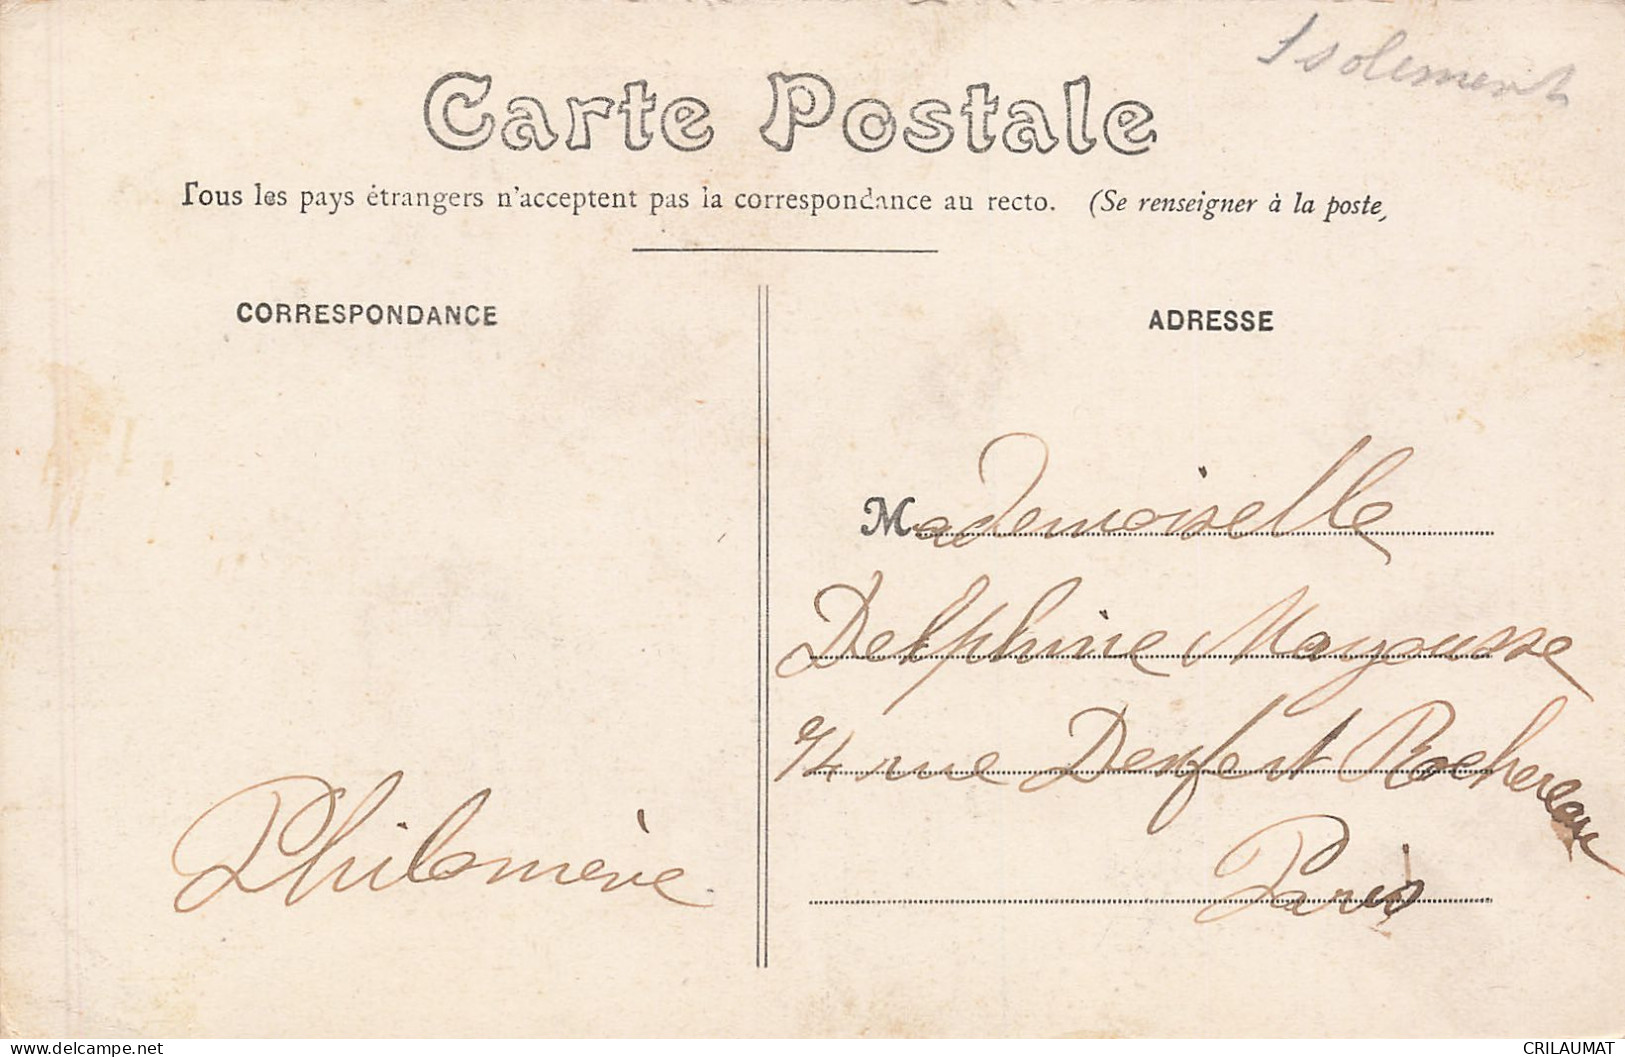 Isolement
Carte Postale
Tous les pays étrangers n'acceptent pas la correspondance au recto. (Se renseigner à la poste)
CORRESPONDANCE
ADRESSE
Mademoiselle
Delphine Mayousse
rue Denfert Rochereau
Paris
Philomène
www.delcampe.net
CRILAUMAT